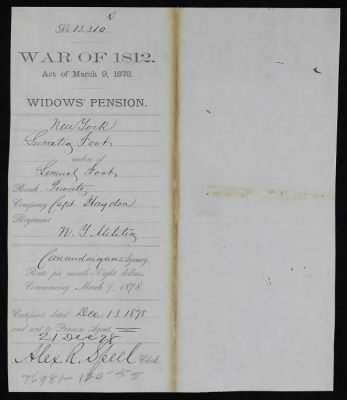 No. 13.310
WAR OF 1812.
Act of March 9, 1878.
WIDOWS' PENSION.
New York
Lunetia Foot,
widow of
Lemuel Foot,
Rank Private,
Company Capt. Haydon
Regiment
N. Y. Militia
Canandaigua Agency.
Rate per month Eight dollars,
Commencing March 9, 1878.
Certificate dated Dec 13. 1878
and sent to Pension Agent,
21 Dec 78
Alex R. Speel Clerk.
76981-120-55